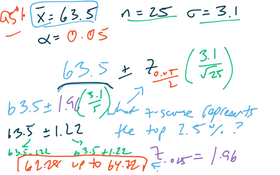 x̄ = 63.5 n = 25 σ = 3.1
α = 0.05
63.5 ± z 0.05/2 (3.1/√25)
63.5 ± 1.96 (3.1/5) what z-score represents
63.5 ± 1.22 the top 2.5% ?
63.5 - 1.22 63.5 + 1.22
62.28 up to 64.72 z .025 = 1.96